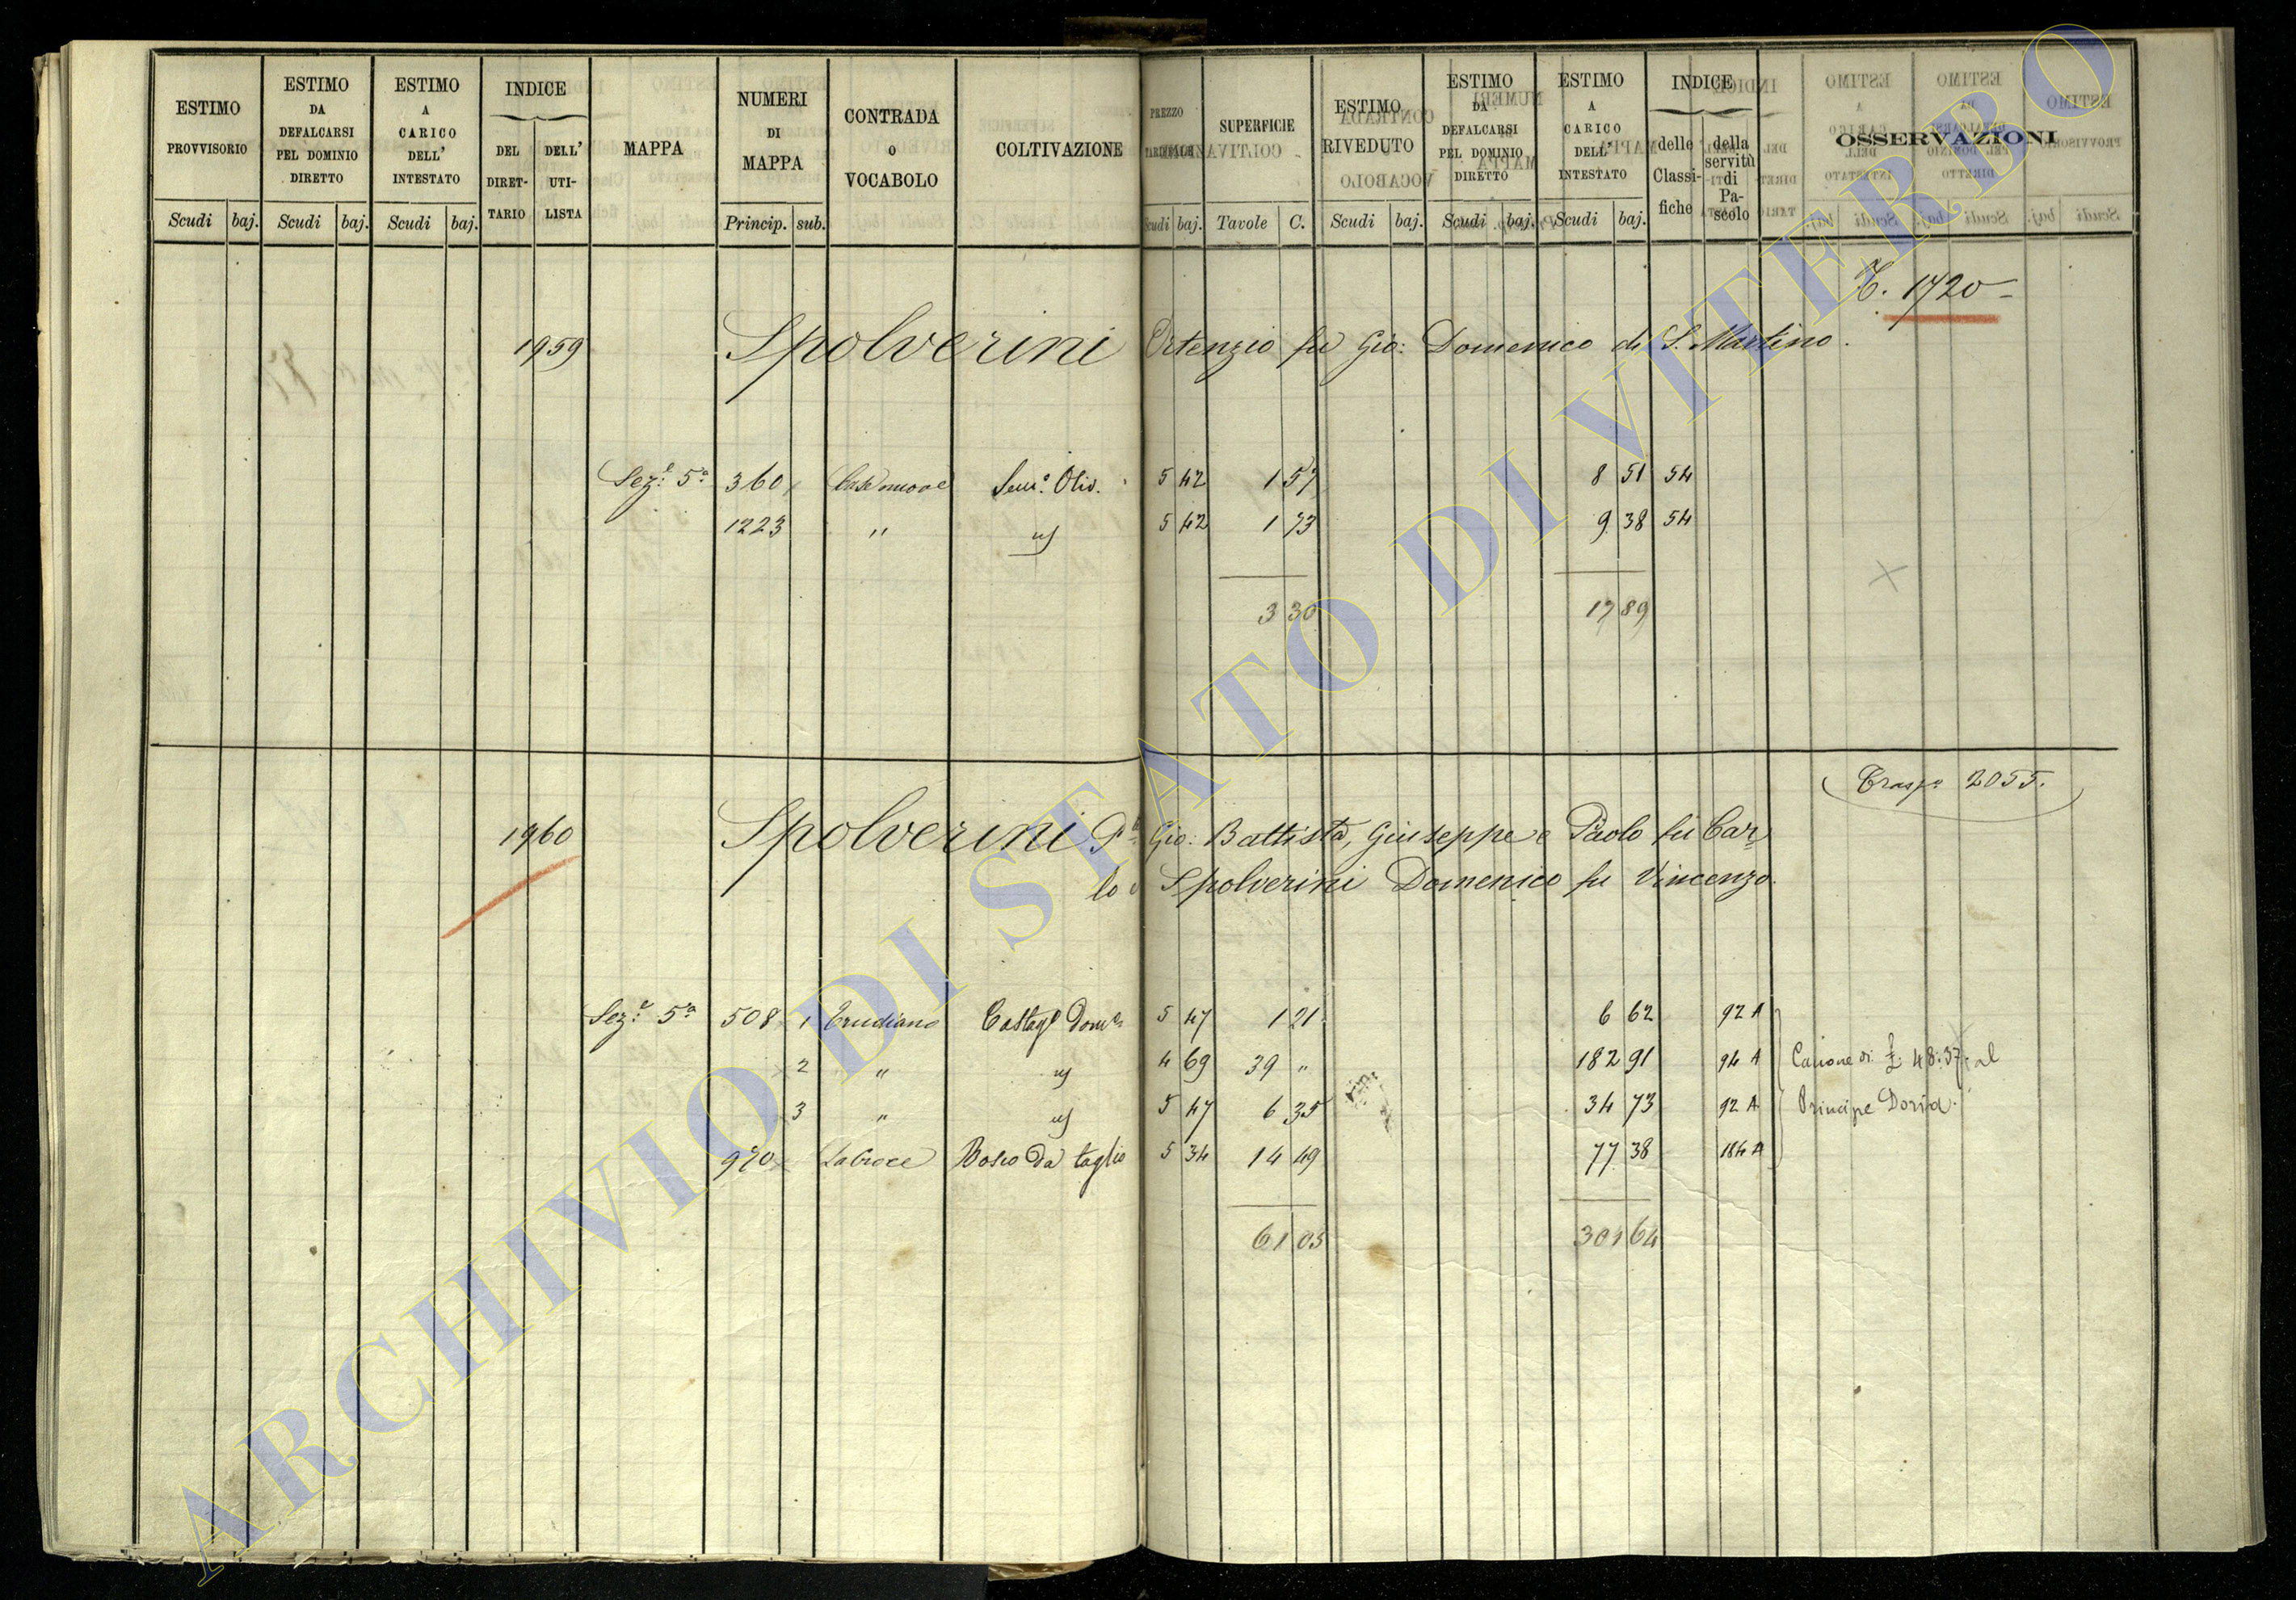 ESTIMO PROVVISORIO
ESTIMO DA DEFALCARSI PEL DOMINIO DIRETTO
ESTIMO A CARICO DELL' INTESTATO
INDICE
DEL DIRET-TARIO
DELL' UTI-LISTA
MAPPA
NUMERI DI MAPPA
CONTRADA O VOCABOLO
COLTIVAZIONE
PREZZO
SUPERFICIE
ESTIMO RIVEDUTO
ESTIMO DA DEFALCARSI PEL DOMINIO DIRETTO
ESTIMO A CARICO DELL' INTESTATO
INDICE
delle Classi-fiche
della servitù di Pa-scolo
OSSERVAZIONI
Scudi baj. Scudi baj. Scudi baj. Princip. sub. Scudi baj. Tavole C. Scudi baj. Scudi baj. Scudi baj.
T. 1720
1959 Spolverini Ortenzio fu Gio: Domenico di S. Martino.
Sez.e 5a 360 Casenuove Sem.o Oliv. 5 42 1 57 8 51 54
1223 " " 5 42 1 73 9 38 54
3 30 17 89
Trasp. 2055.
1960 Spolverini Gio: Battista, Giuseppe e Paolo fu Car
lo e Spolverini Domenico fu Vincenzo.
Sez.e 5a 508 1 Trudiano Castag.o Dom.o 5 47 1 21 6 62 92 A
2 " " 4 69 39 " 182 91 94 A Canone di £ 48:37 al
3 " " 5 47 6 35 34 73 92 A Principe Doria.
970 La Croce Bosco da taglio 5 34 14 49 77 38 184 A
61 05 301 64
ARCHIVIO DI STATO DI VITERBO